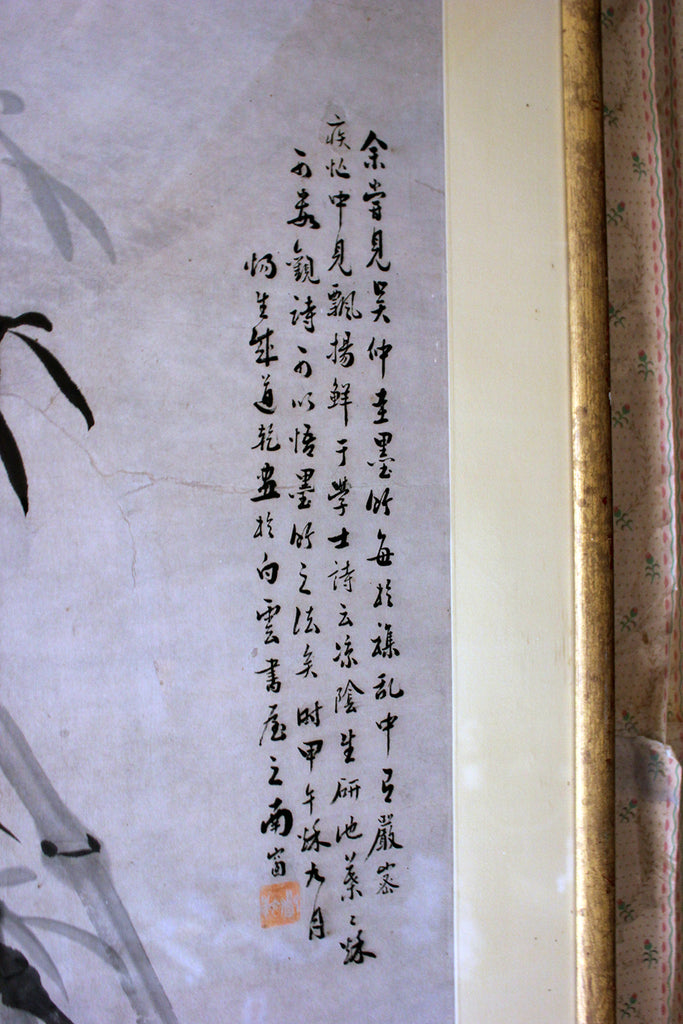 余嘗見吴仲圭墨竹每於襍乱中有嚴密
疾忙中見飄揚鮮于學士詩云凉陰生研池葉〻秋
可数觀詩可以悟墨竹之法矣时甲午秌九月
惕生成道乾画於白雲書屋之南窗